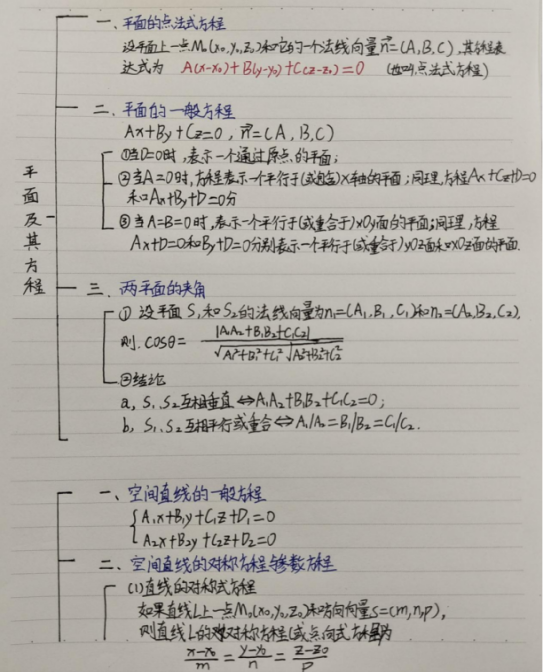 一、平面的点法式方程
设平面上一点M₀(x₀,y₀,z₀)和它的一个法线向量n⃗=(A,B,C),其
达式为 A(x-x₀)+B(y-y₀)+C(z-z₀)=0 (也叫点法式方程)
二、平面的一般方程
Ax+By+Cz=0,n⃗=(A,B,C)
①当D=0时,表示一个通过原点的平面;
②当A=0时,方程表示一个平行于(或包含)x轴的平面;同理,方程Ax+Cz+D=0
和Ax+By+D=0分
③当A=B=0时,表示一个平行于(或重合于)xOy面的平面;同理,方程
Ax+D=0和By+D=0分别表示一个平行于(或重合于)yOz面和xOz面的平面.
平面及其方程
三、两平面的夹角
① 设平面S₁和S₂的法线向量为n₁=(A₁,B₁,C₁)和n₂=(A₂,B₂,C₂),
则.cosθ= |A₁A₂+B₁B₂+C₁C₂| / √A₁²+B₁²+C₁² √A₂²+B₂²+C₂²
②结论
a, S₁,S₂互相垂直⇔A₁A₂+B₁B₂+C₁C₂=0;
b, S₁,S₂互相平行或重合⇔A₁/A₂=B₁/B₂=C₁/C₂.
一、空间直线的一般方程
{A₁x+B₁y+C₁z+D₁=0
A₂x+B₂y+C₂z+D₂=0
二、空间直线的对称方程与参数方程
(1)直线的对称式方程
如果直线L上一点M₀(x₀,y₀,z₀)和方向向量s=(m,n,p),
则直线L的对称方程(或点向式方程)为
x-x₀/m = y-y₀/n = z-z₀/p